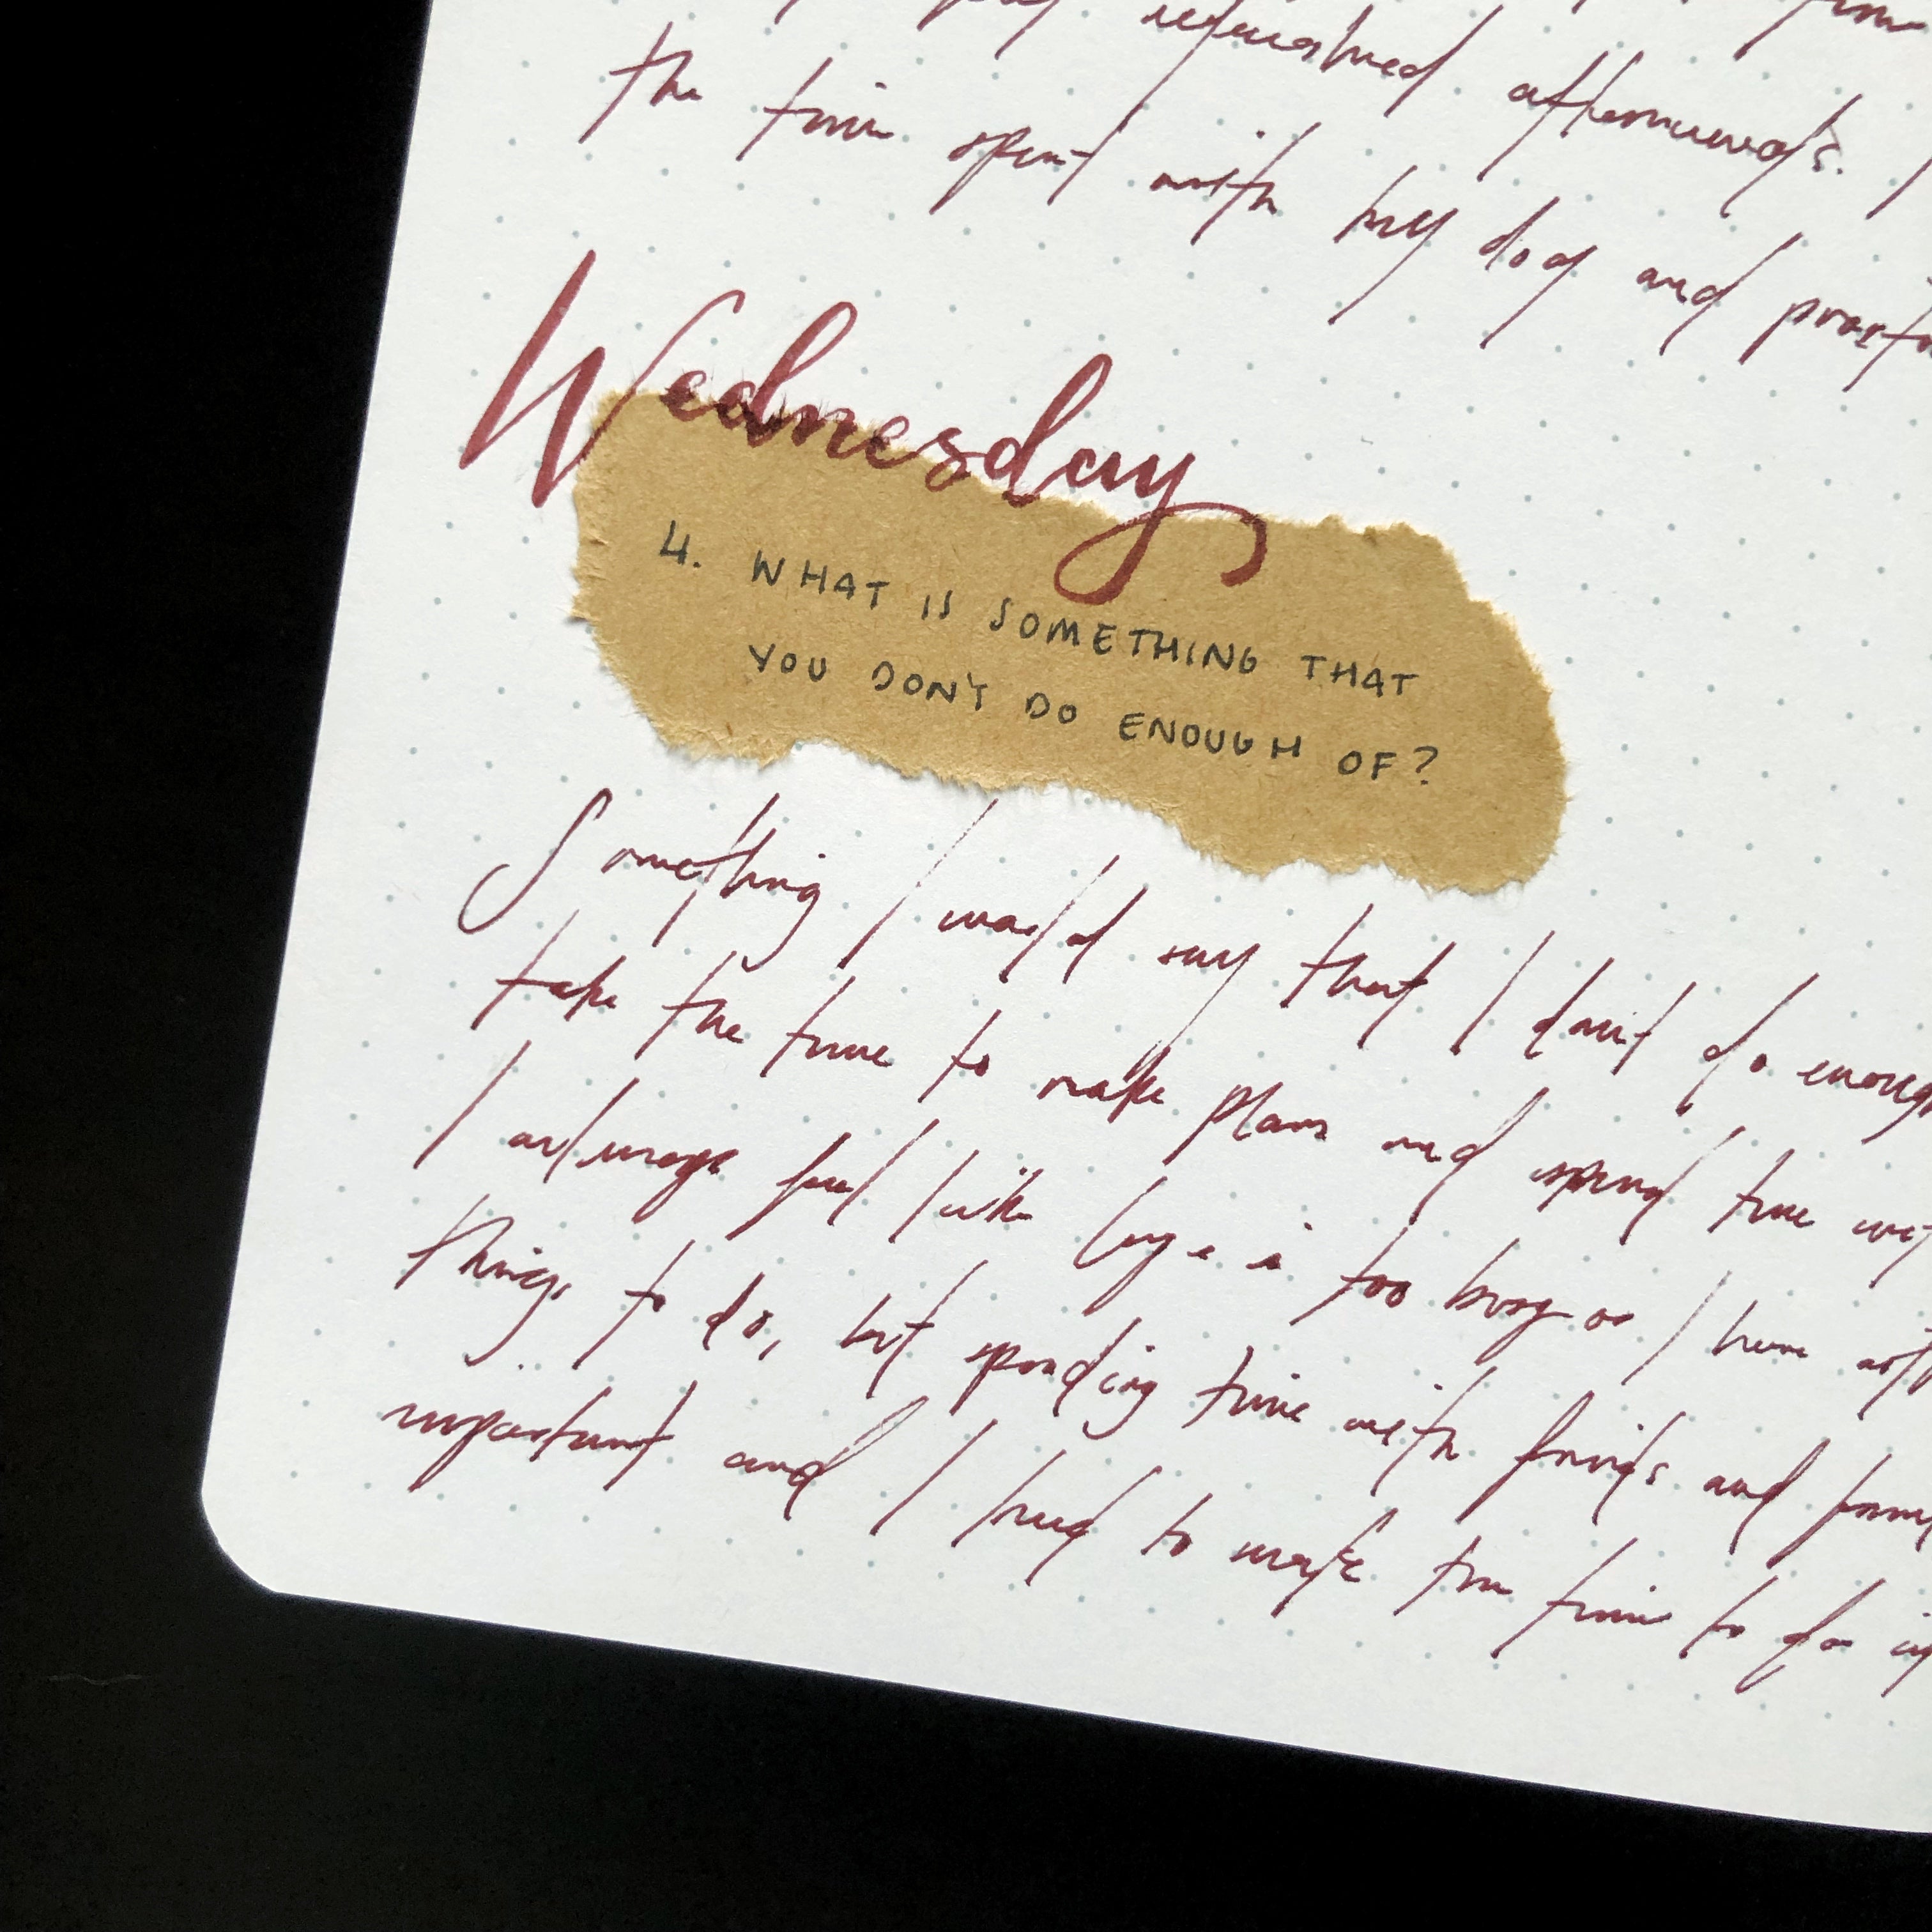 refreshed afterwards. I
the time spent with my dog and
Wednesday
4. WHAT IS SOMETHING THAT
YOU DON'T DO ENOUGH OF?
Something I would say that I don't do enough
take the time to make plans and spend time
I always feel like life is too busy or I have
things to do, but spending time with friends and
important and I need to make the time to do